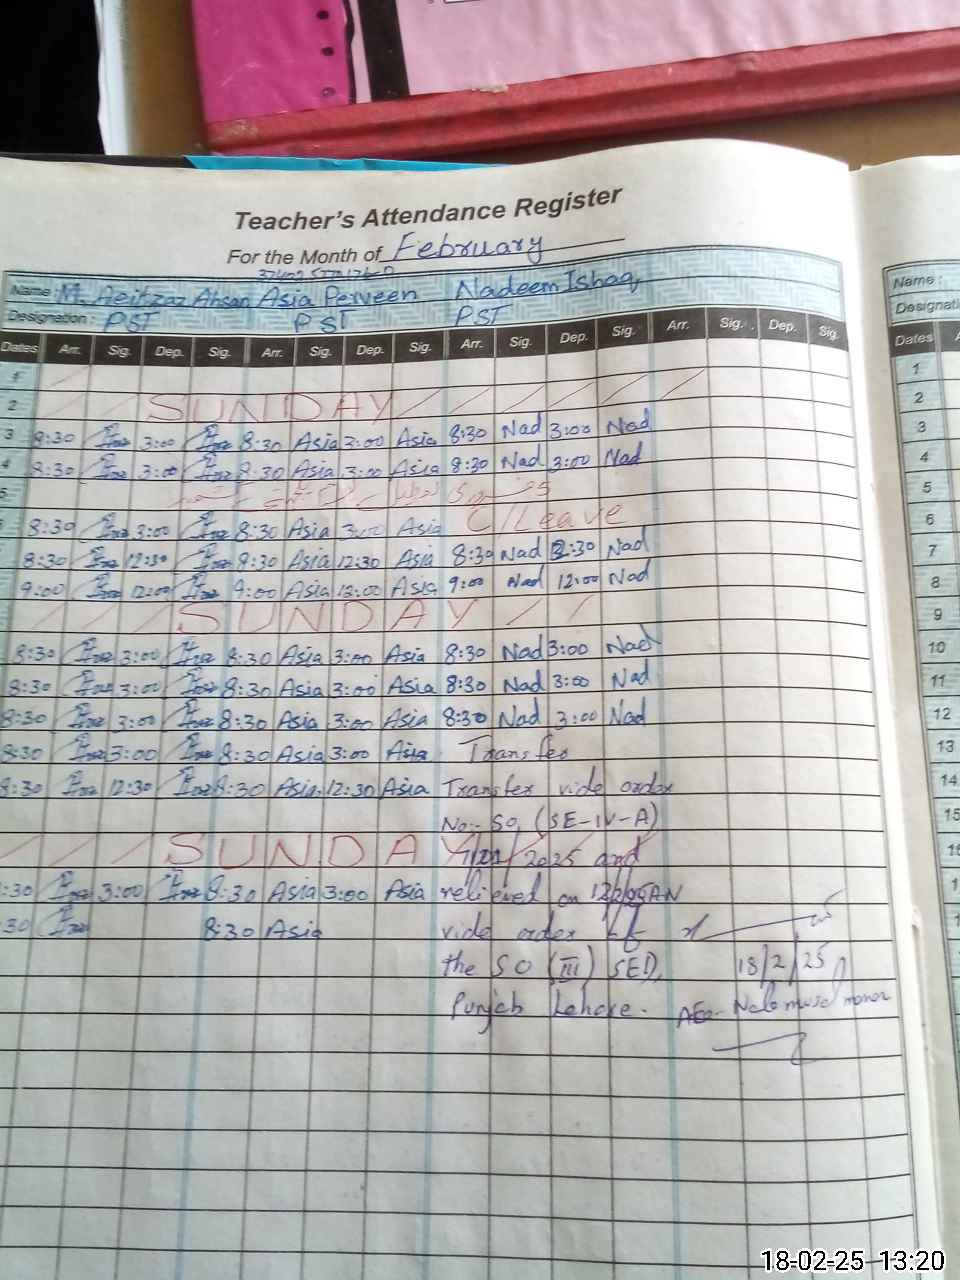 Teacher's Attendance Register
For the Month of February
Name: M. Aeitzaz Ahsan Asia Perveen Nadeem Ishaq
Designation: PST PST PST
Dates Arr. Sig. Dep. Sig. Arr. Sig. Dep. Sig. Arr. Sig. Dep. Sig. Arr. Sig. Dep. Sig.
1
2 SUNDAY
3 8:30 3:00 8:30 Asia 3:00 Asia 8:30 Nad 3:00 Nad
4 8:30 3:00 8:30 Asia 3:00 Asia 8:30 Nad 3:00 Nad
5
8:30 3:00 8:30 Asia 3:00 Asia C/Leave
8:30 12:30 8:30 Asia 12:30 Asia 8:30 Nad :30 Nad
9:00 12:00 9:00 Asia 12:00 Asia 9:00 Nad 12:00 Nad
SUNDAY
8:30 3:00 8:30 Asia 3:00 Asia 8:30 Nad 3:00 Nad
8:30 3:00 8:30 Asia 3:00 Asia 8:30 Nad 3:00 Nad
8:30 3:00 8:30 Asia 3:00 Asia 8:30 Nad 3:00 Nad
8:30 3:00 8:30 Asia 3:00 Asia Transfer
8:30 12:30 8:30 Asia 12:30 Asia Transfer vide order
No:- SO (SE-IV-A)
SUNDAY 2025 and
:30 3:00 8:30 Asia 3:00 Asia relieved on
30 8:30 Asia vide order of
the SO (III) SED, 18/2/25
Punjab Lahore. AEO-
Name:
Designati
Dates
1
2
3
4
5
6
7
8
9
10
11
12
13
14
15
16
1
1
18-02-25 13:20